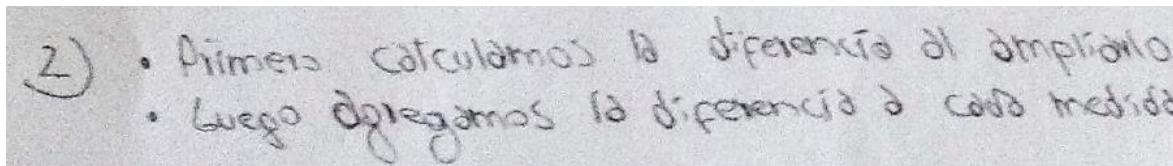 2) • Primero calculamos la diferencia al ampliarlo
• Luego agregamos la diferencia a cada medida